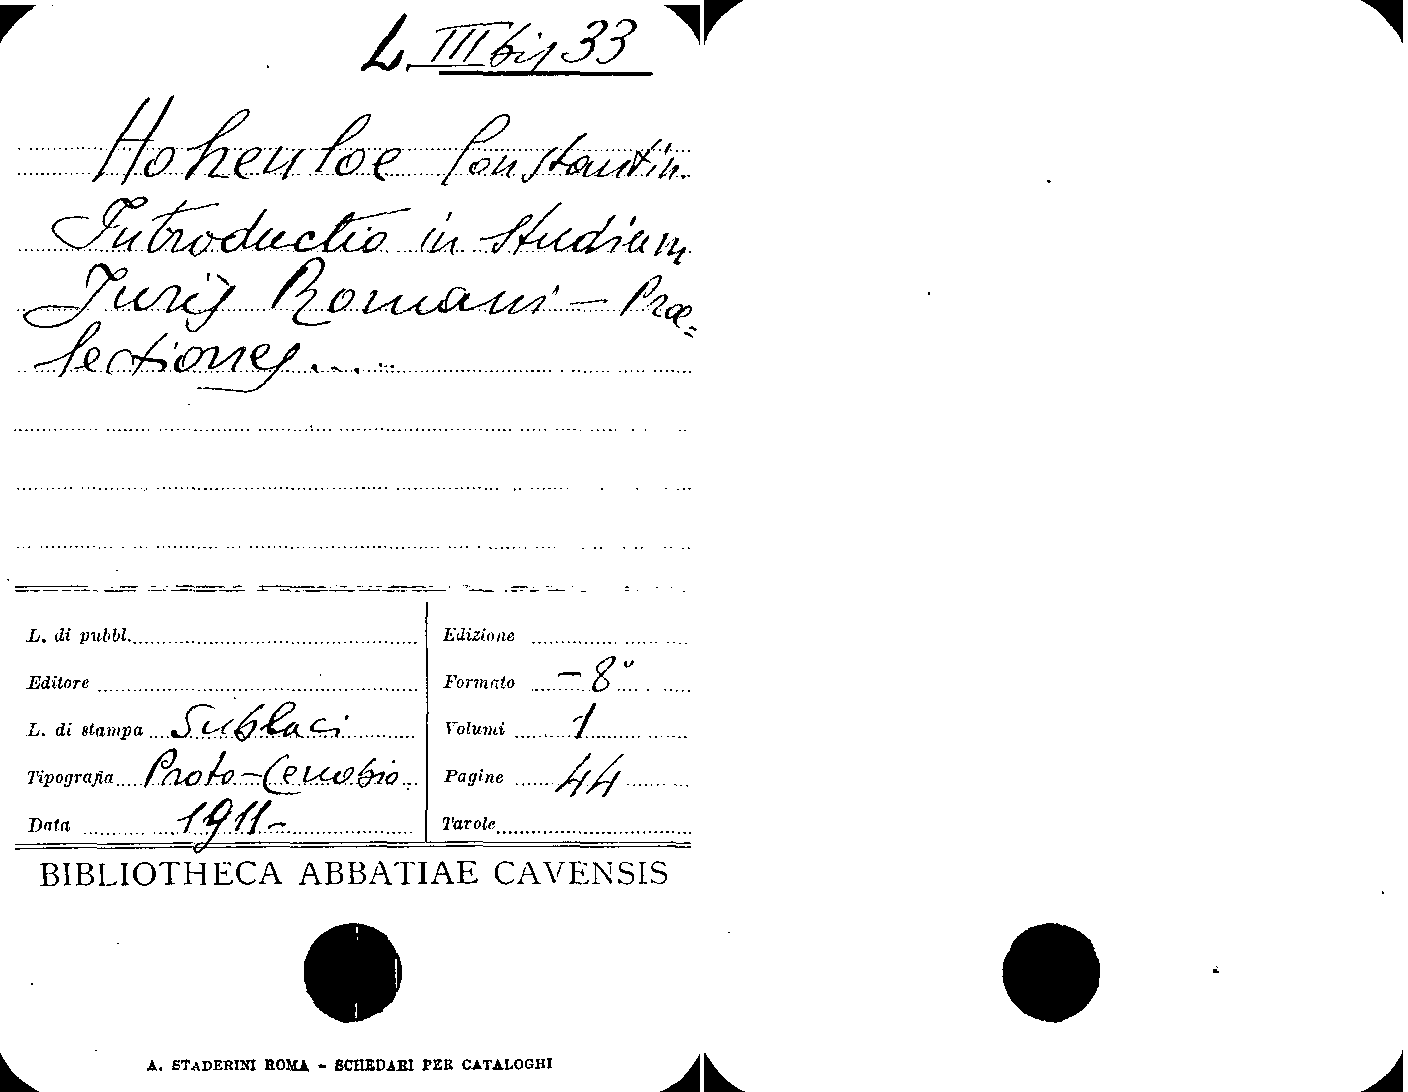 L. III bis 33
Hohenloe Constantin.
Introductio in studium
Juris Romani - Prae=
lectiones....
L. di pubbl.
Edizione
Editore
Formato -8°
L. di stampa Sublaci
Volumi 1
Tipografia Proto-Cenobio
Pagine 44
Data 1911-
Tavole
BIBLIOTHECA ABBATIAE CAVENSIS
A. STADERINI ROMA - SCHEDARI PER CATALOGHI